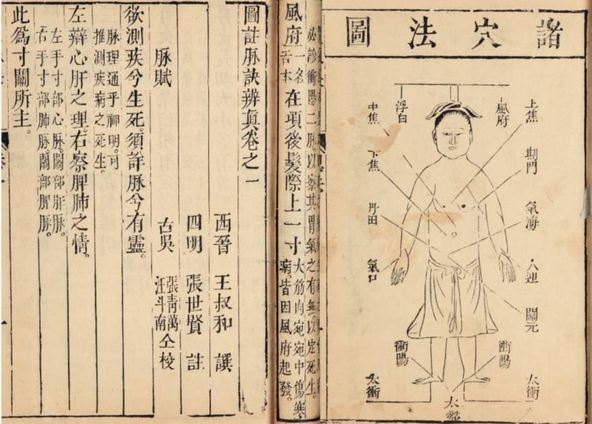 諸穴法圖
上焦
風府
期門
氣海
人迎
關元
衝陽
太衝
浮白
中焦
下焦
丹田
氣口
衝陽
太衝
診衝陽二脉以察其胃氣之有無以定死生
風府一名舌本在項後髮際上一寸大筋肉宛宛中傷寒
病皆因風府起發。
圖註脉訣辨真卷之一
西晉 王叔和 譔
四明 張世賢 註
古吳 張青萬
汪斗南 仝校
脉賦
欲測疾兮生死。須詳脉兮有靈。
脉理通乎神明。可
推測疾病之死生。
左辯心肝之理。右察脾肺之情。
左手寸部心脉。關部肝脉。
右手寸部肺脉。關部脾脉。
此為寸關所主。